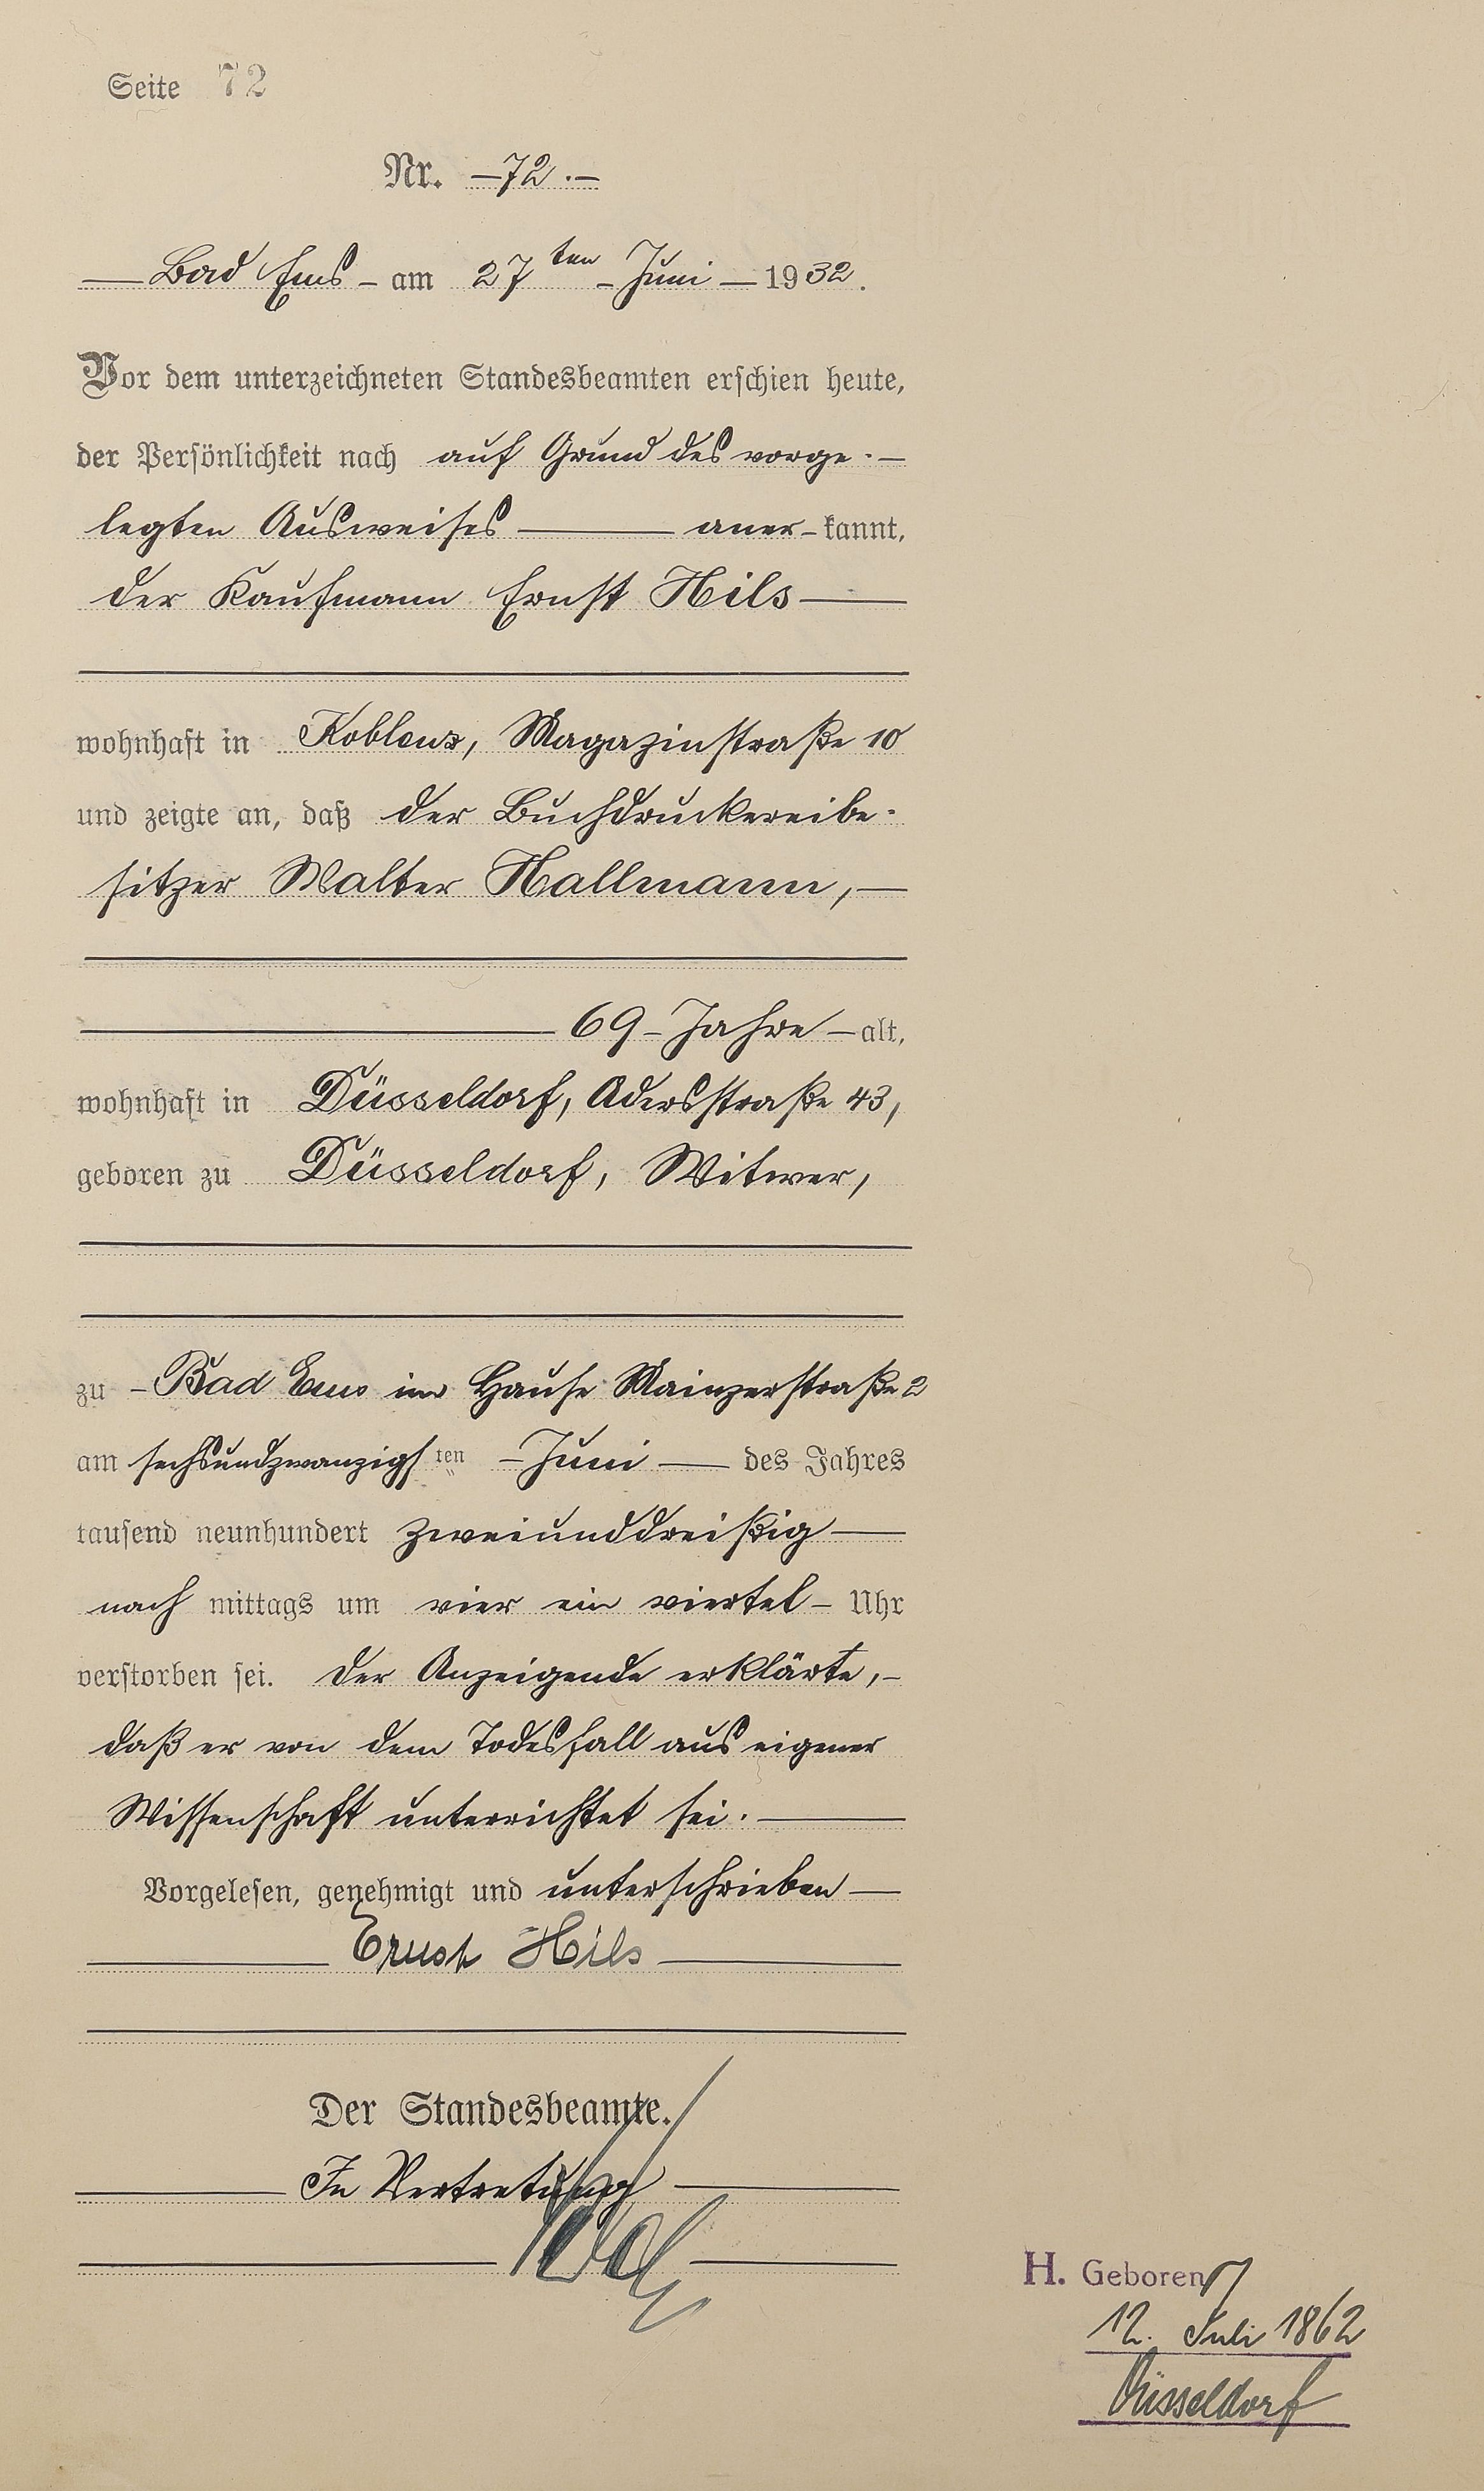 Seite 72
Nr. —72.—
— Bad Ems – am 27ten – Juni — 1932.
Vor dem unterzeichneten Standesbeamten erschien heute,
der Persönlichkeit nach auf Grund des vorge-—
legten Ausweises — aner-kannt,
der Kaufmann Ernst Hils —
wohnhaft in Koblenz, Magazinstraße 10
und zeigte an, daß der Buchdruckereibe-
sitzer Walter Hallmann, —
— 69 – Jahre – alt,
wohnhaft in Düsseldorf, Adersstraße 43,
geboren zu Düsseldorf, Witwer,
zu – Bad Ems im Hause Mainzerstraße 2
am sechsundzwanzigsten – Juni — des Jahres
tausend neunhundert zweiunddreißig —
nach mittags um vier ein viertel – Uhr
verstorben sei. Der Anzeigende erklärte, –
daß er von dem Todesfall aus eigener
Wissenschaft unterrichtet sei. —
Vorgelesen, genehmigt und unterschrieben —
— Ernst Hils —
Der Standesbeamte.
— In Vertretung —
H. Geboren
12. Juli 1862
Düsseldorf